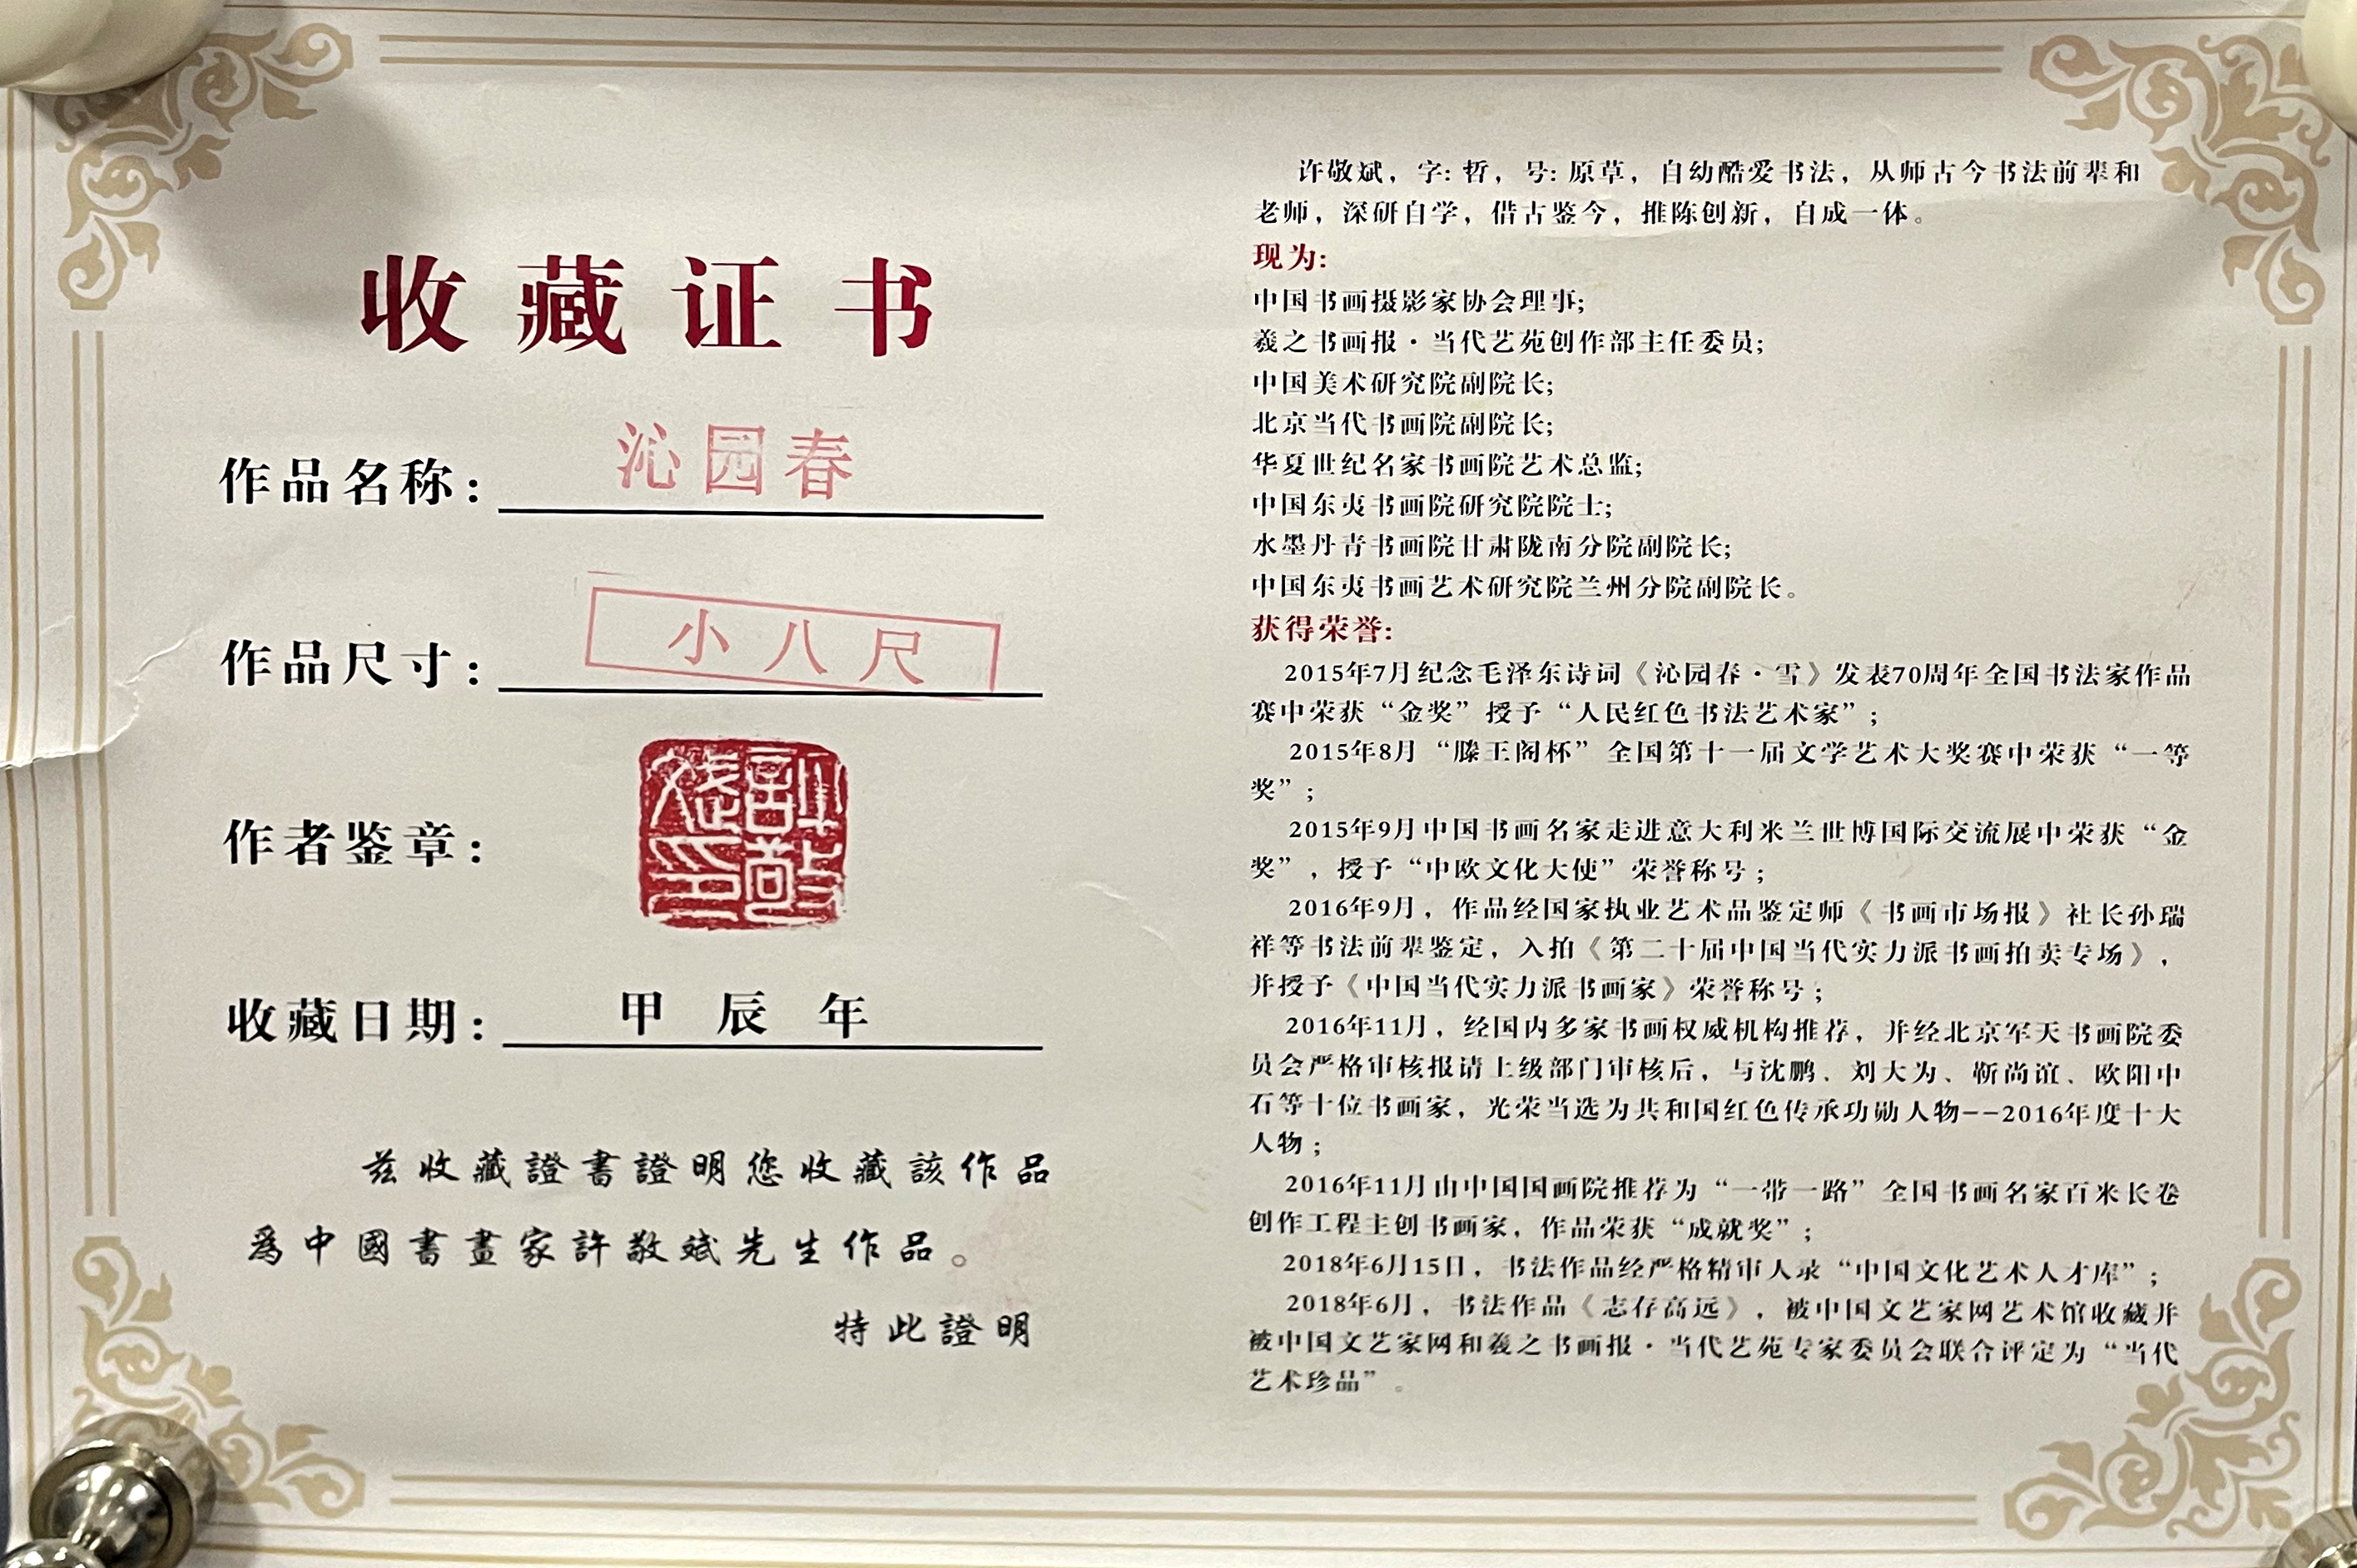 收藏证书
作品名称：沁园春
作品尺寸：小八尺
作者鉴章：
收藏日期：甲辰年
兹收藏證書證明您收藏該作品
爲中國書畫家許敬斌先生作品。
特此證明
许敬斌，字：哲，号：原草，自幼酷爱书法，从师古今书法前辈和
老师，深研自学，借古鉴今，推陈创新，自成一体。
现为：
中国书画摄影家协会理事；
羲之书画报·当代艺苑创作部主任委员；
中国美术研究院副院长；
北京当代书画院副院长；
华夏世纪名家书画院艺术总监；
中国东夷书画院研究院院士；
水墨丹青书画院甘肃陇南分院副院长；
中国东夷书画艺术研究院兰州分院副院长。
获得荣誉：
2015年7月纪念毛泽东诗词《沁园春·雪》发表70周年全国书法家作品
赛中荣获“金奖”授予“人民红色书法艺术家”；
2015年8月“滕王阁杯”全国第十一届文学艺术大奖赛中荣获“一等
奖”；
2015年9月中国书画名家走进意大利米兰世博国际交流展中荣获“金
奖”，授予“中欧文化大使”荣誉称号；
2016年9月，作品经国家执业艺术品鉴定师《书画市场报》社长孙瑞
祥等书法前辈鉴定，入拍《第二十届中国当代实力派书画拍卖专场》，
并授予《中国当代实力派书画家》荣誉称号；
2016年11月，经国内多家书画权威机构推荐，并经北京军天书画院委
员会严格审核报请上级部门审核后，与沈鹏、刘大为、靳尚谊、欧阳中
石等十位书画家，光荣当选为共和国红色传承功勋人物--2016年度十大
人物；
2016年11月由中国国画院推荐为“一带一路”全国书画名家百米长卷
创作工程主创书画家，作品荣获“成就奖”；
2018年6月15日，书法作品经严格精审入录“中国文化艺术人才库”；
2018年6月，书法作品《志存高远》，被中国文艺家网艺术馆收藏并
被中国文艺家网和羲之书画报·当代艺苑专家委员会联合评定为“当代
艺术珍品”。